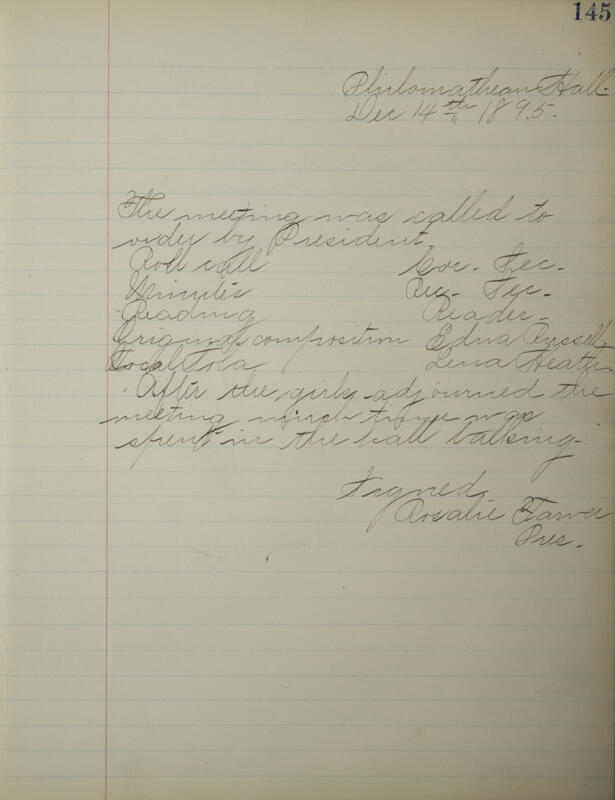 145
Philomathean Hall.
Dec 14th 1895.
The meeting was called to
order by President.
Roll call Cor. Sec.
Minutes Rec. Sec.
Reading Reader.
Original composition Edna Russell
Vocal Solo Lena
After the girls adjourned the
meeting much time was
spent in the hall talking.
Signed
Rosalie
Pres.